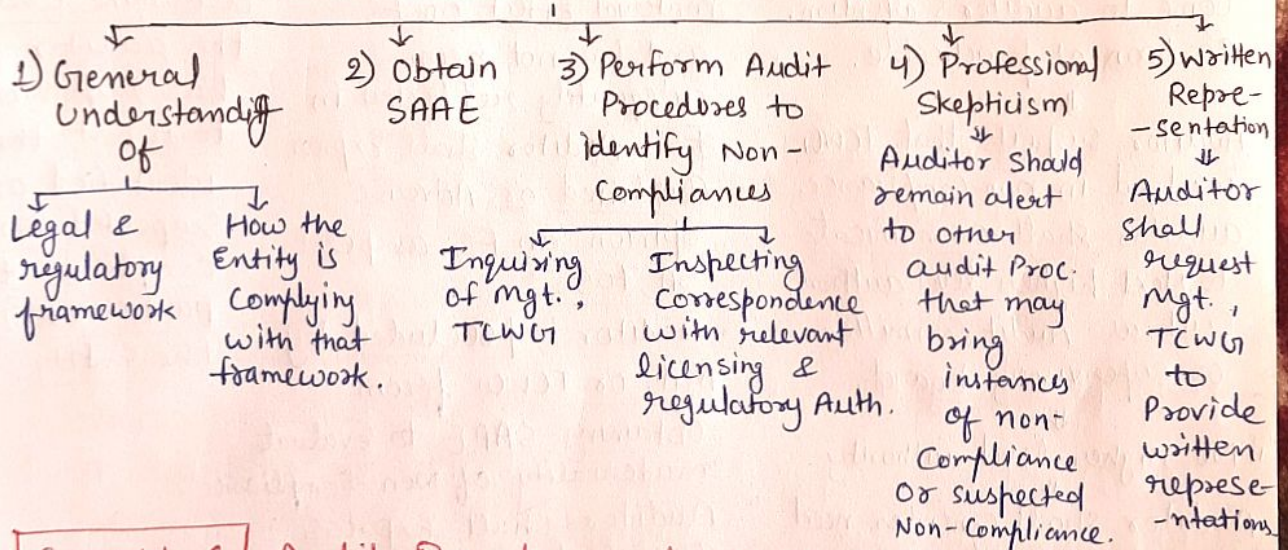 1) General
Understanding
Of
Legal &
regulatory
framework
How the
Entity is
Complying
with that
framework.
2) Obtain
SAAE
3) Perform Audit
Procedures to
identify Non-
Compliances
Inquiring
of Mgt.,
TCWG
Inspecting
Correspondence
with relevant
licensing &
regulatory Auth.
4) Professional
Skepticism
Auditor Should
remain alert
to other
audit Proc.
that may
bring
instances
of non-
Compliance
Or suspected
Non-Compliance.
5) Written
Repre-
-sentation
Auditor
shall
request
Mgt.,
TCWG
to
Provide
written
represe-
-ntations